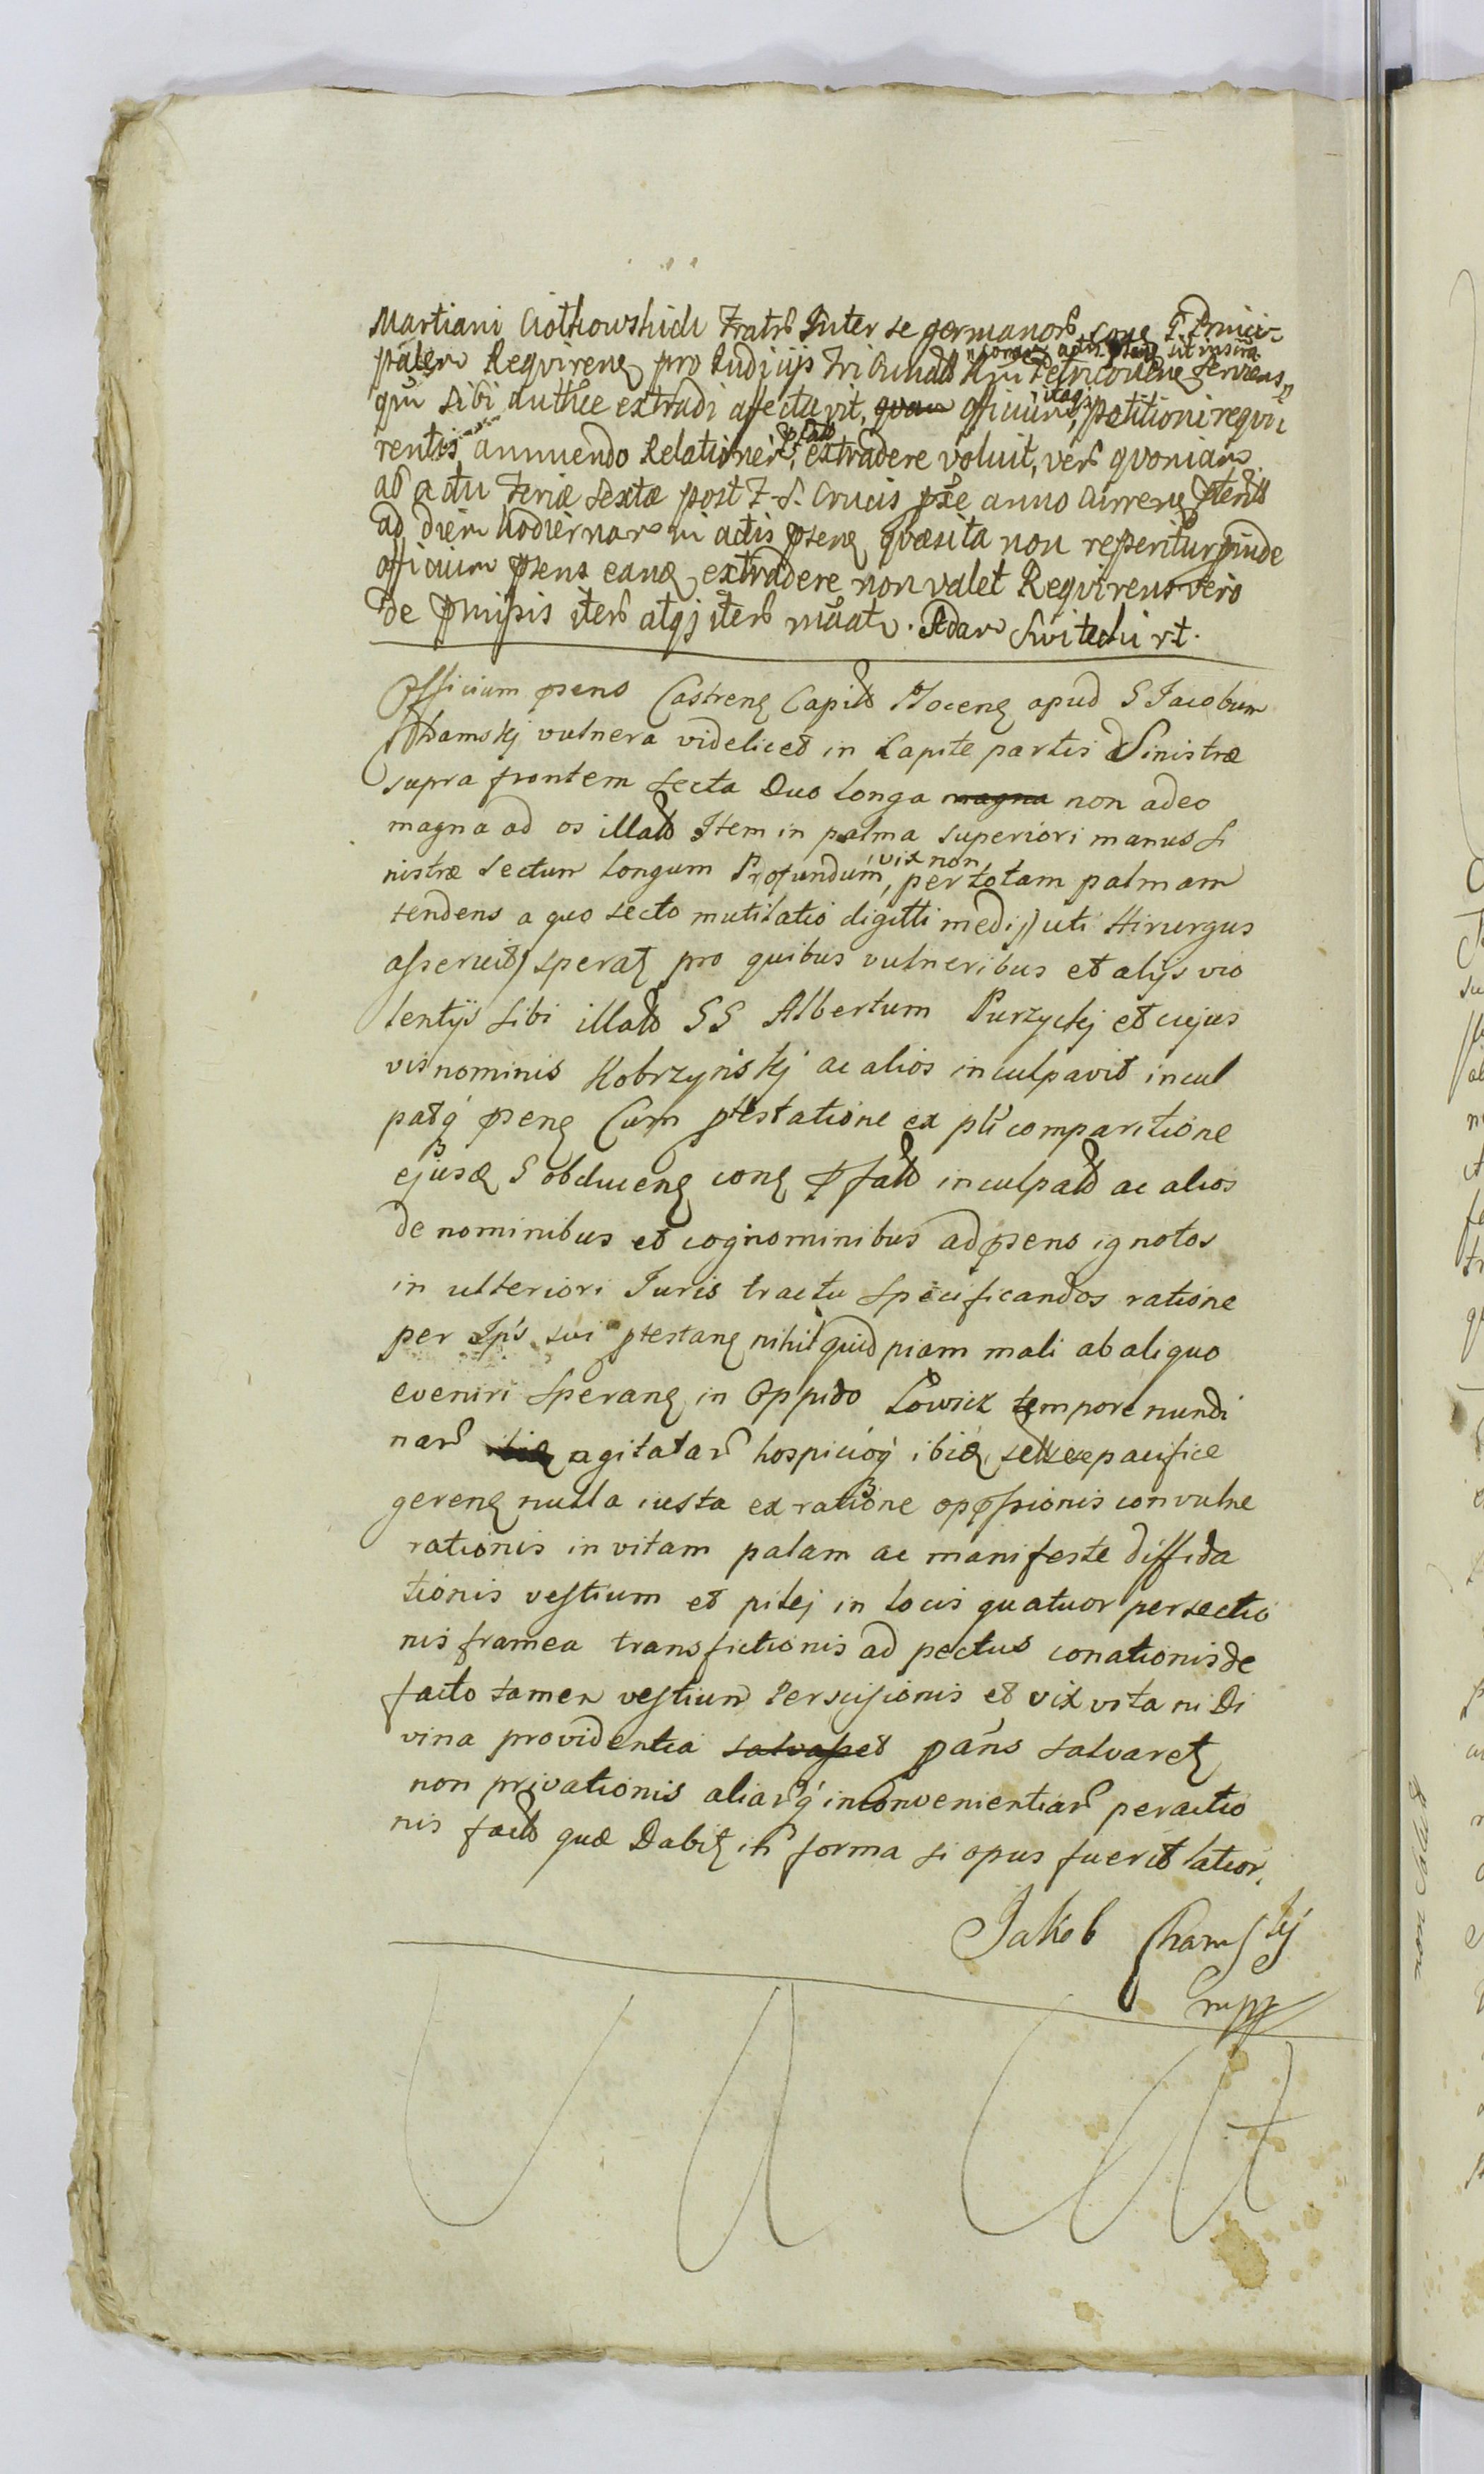 Martiani Ciołkowskich Fratrũ Inter se germanorũ cone P. Princi
palem Requirenę pro Iudicijs Tribunałł Petricovienę Serviens
qũi sibi authce extradi affectavit, quam officium, itaqȝ petitioni requi
rentis annuendo Relationem, pfałł extradere voluit, verũ quoniam
ab actu Feriæ Sextæ post F. S. Crucis pxe anno currenę
ad diem hodiernam in actis psenę quæsita non reperitur, proinde
officium psens eandę extradere non valet Requirens vero
de pmissis iterũ atqȝ iterũ mãat. Adam Switecki rt.
Officium psens Castrenę Capitł Płocenę apud G Jacobum
Chamskj vulnera videlicet in Capite partis Sinistræ
supra frontem secta Duo longa magna non adeo
magna ad os illałł Item in palma superiori manus si
nistræ sectum longum Profundum, vix non per totam palmam
tendens a quo secto mutilatio digitti medij) uti Hirurgus
asseruit) speratȝ pro quibus vulneribus et alijs vio
lentijs sibi illałł GG Albertum Purzyckj et cujus
vis nominis Kobrzyńskj ac alios inculpavit incul
patq́ psenę Cum ptestatione ex pti comparitione
ejusdę G obducenę conę pfałł inculpałł ac alios
de nominibus et cognominibus ad psens ignotos
in ulteriori Juris tractu specificandos ratione
per Ips sui ptestanę nihil quid piam mali ab aliquo
eveniri speranę in Oppido Łowicz tempore nundi
narũ ibidę agitatarũ hospicioq́ ibidę sese pacifice
gerenę nulla iusta ex ratione oppssionis convulne
rationis in vitam palam ac manifeste diffida
tionis vestium et pilej in locis quatuor persectio
nis framea transfictionis ad pectus conationis de
facto tamen vestium Perscisionis et vix vita ni Di
vina providentia salvasset pañs salvaretȝ
non privationis aliarũq́ inconvenientiarũ peractio
nis factł quæ Dabitȝ in forma si opus fuerit latior.
Jakob Chamskj
mpp
V A C A T